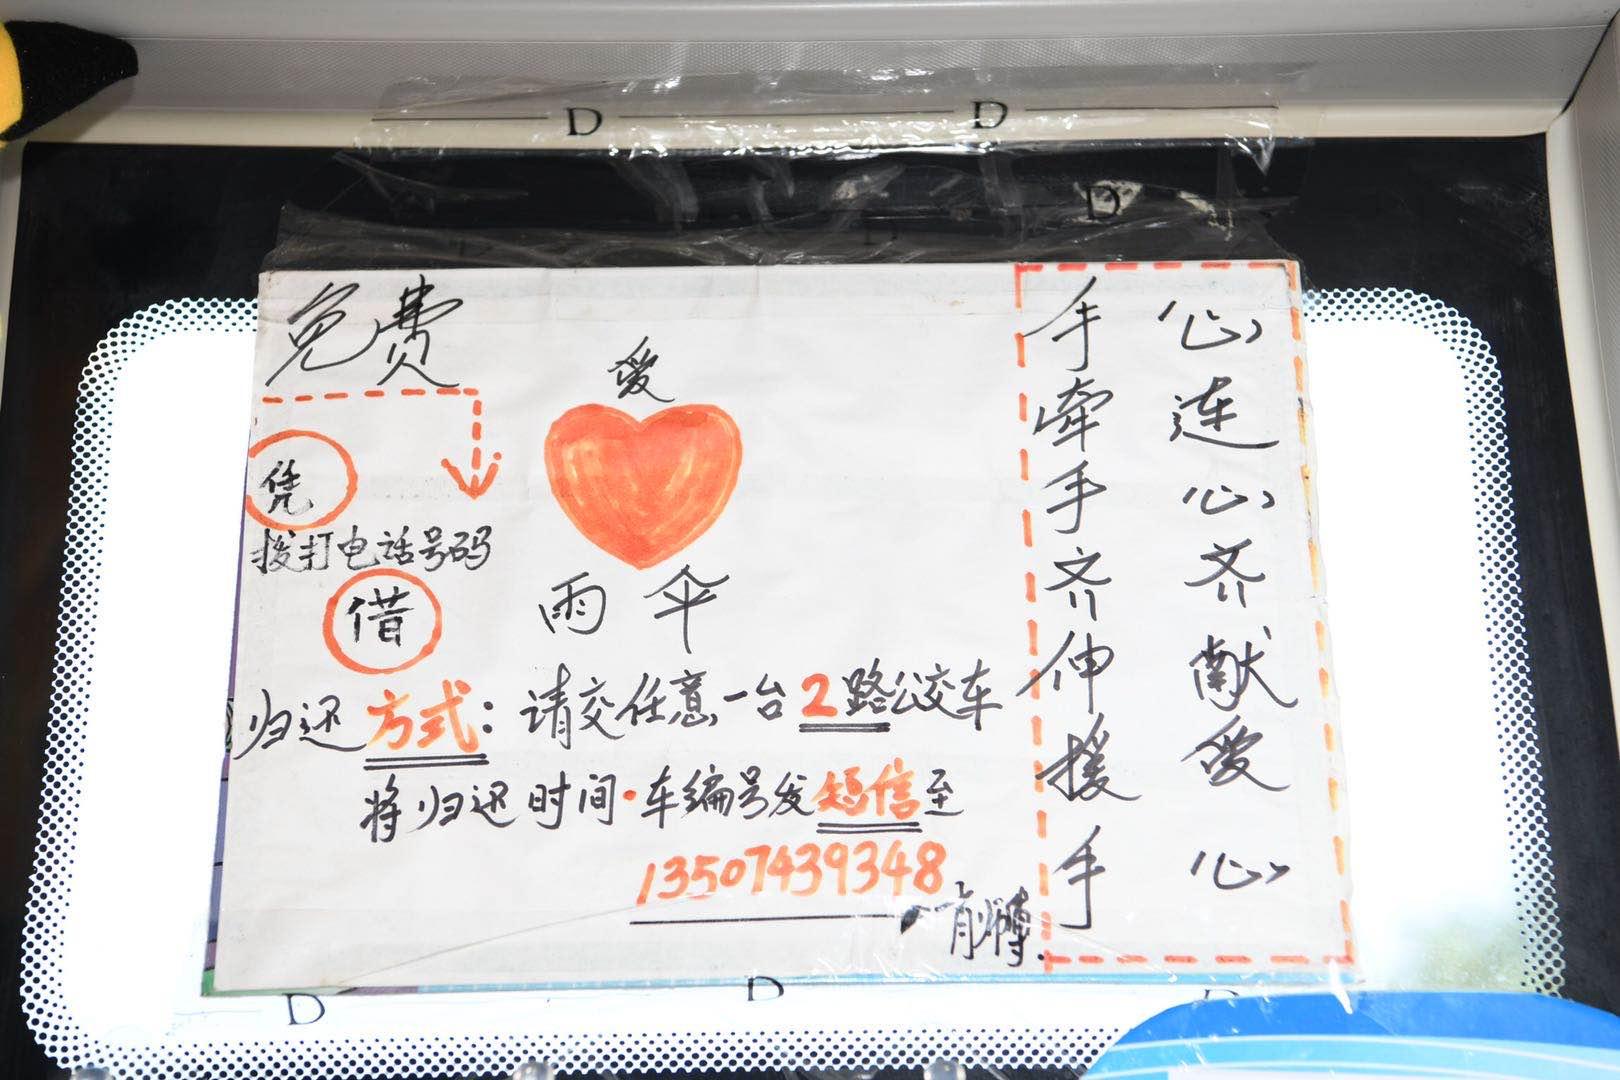 D D
D
免费
爱
凭
拨打电话号码
借
雨伞
归还方式：请交任意一台2路公交车
将归还时间·车编号发短信至
13507439348
肖师傅
心连心齐献爱心
手牵手齐伸援手
D D